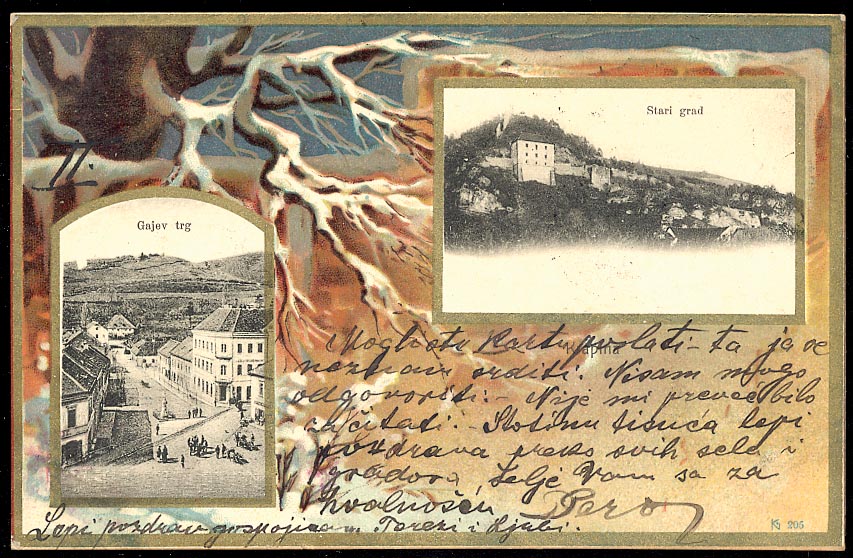 Stari grad
II.
Gajev trg
Krapina
Mogli ste kartu poslati - ta ja se
ne znam srditi. Nisam mogo
odgovoriti. - Nije mi preveć bilo
za čitati. - Stotinu tisuća lepi
pozdrava preko svih sela i
gradova, želje Vam sa za
hvalnošću Pero
Lepi pozdrav gospojicam Terezi i Ljubi.
205